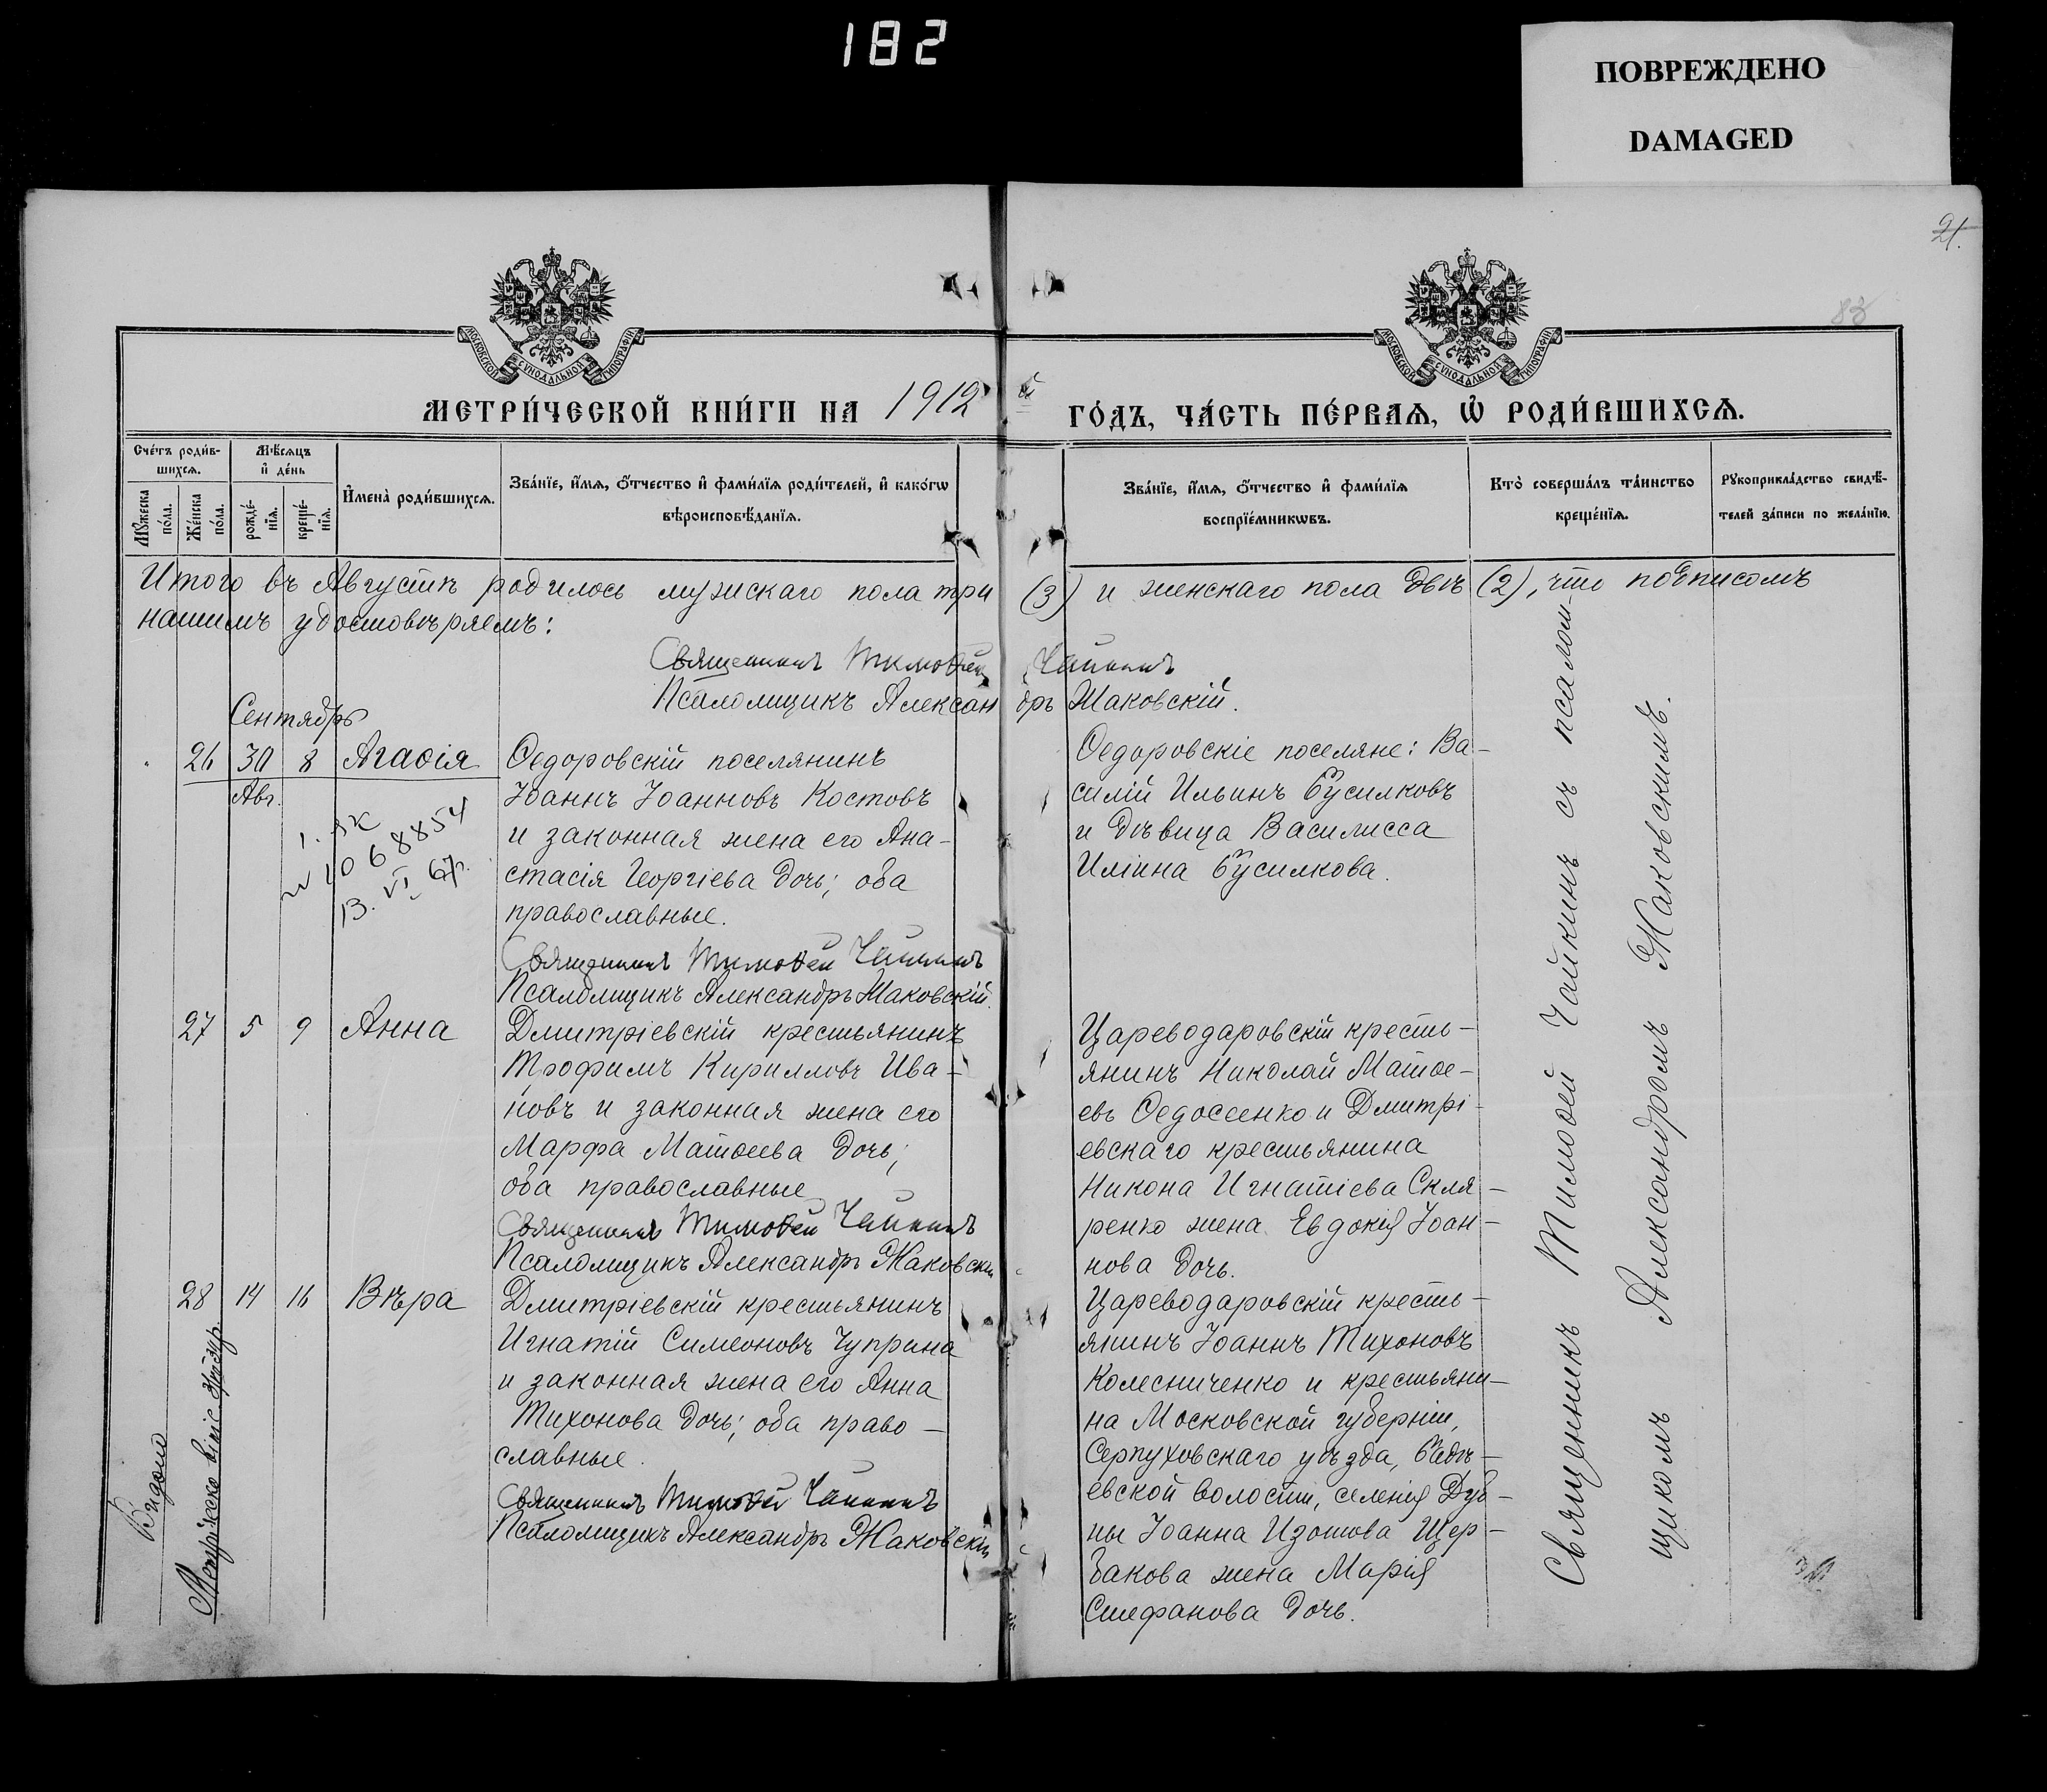 182
ПОВРЕЖДЕНО
DAMAGED
21.
83
МОСКОВСКОЙ СѴНОДАЛЬНОЙ ТИПОГРАФІИ
МОСКОВСКОЙ СѴНОДАЛЬНОЙ ТИПОГРАФІИ
МЕТРИ́ЧЕСКОЙ КНИ́ГИ НА 1912 й ГО́ДЪ, ЧА́СТЬ ПЕ́РВАѦ, Ѽ РОДИ́ВШИХСѦ.
Сче́тъ роди́в-
шихсѧ.
Мѣ́сѧцъ
и҆ де́нь
Мꙋ́жеска
по́ла.
Же́нска
по́ла.
рожде́-
нїѧ.
креще́-
нїѧ.
И҆мена̀ роди́вшихсѧ.
Зва́нїе, и҆́мѧ, ѻ҆́тчество и҆ фами́лїѧ роди́телей, и҆ како́гѡ
вѣроисповѣ́данїѧ.
Зва́нїе, и҆́мѧ, ѻ҆́тчество и҆ фами́лїѧ
воспрїе́мникѡвъ.
Кто̀ соверша́лъ та́инство
креще́нїѧ.
Рꙋкоприкла́дство свидѣ́-
телей за́писи по жела́нїю.
Итого въ Августѣ родилось мужскаго пола три (3) и женскаго пола двѣ (2), что подписомъ
нашимъ удостовѣряемъ:
Священникъ Тимоѳей Чайкинъ
Псаломщикъ Александръ Жаковскій.
Сентябрь
26 30 8 Агаѳія
Авг.
Ѳедоровскій поселянинъ
Іоаннъ Іоанновъ Костовъ
и законная жена его Ана-
стасія Георгіева дочь; оба
православные.
Священникъ Тимоѳей Чайкинъ
Псаломщикъ Александръ Жаковскій.
Ѳедоровскіе поселяне: Ва-
силій Ильинъ Бусилковъ
и дѣвица Василисса
Иліина Бусилкова.
1. ЯК
N 1068854
13. VI 67р.
27 5 9 Анна
Дмитріевскій крестьянинъ
Трофимъ Кирилловъ Ива-
новъ и законная жена его
Марфа Матѳеева дочь;
оба православные
Священникъ Тимоѳей Чайкинъ
Псаломщикъ Александръ Жаковскій
Цареводаровскій кресть-
янинъ Николай Матѳе-
евъ Ѳедосенко и Дмитрі-
евскаго крестьянина
Никона Игнатіева Скля-
ренко жена Евдокія Іоан-
нова дочь.
28 14 16 Вѣра
Дмитріевскій крестьянинъ
Игнатій Симеоновъ Чуприна
и законная жена его Анна
Тихонова дочь; оба право-
славные.
Священникъ Тимоѳей Чайкинъ
Псаломщикъ Александръ Жаковскій
Цареводаровскій кресть-
янинъ Іоаннъ Тихоновъ
Колесниченко и крестьяни-
на Московской губерніи,
Серпуховскаго уѣзда, Бадѣ-
евской волости, селенія Дуб-
ны Іоанна Изотова Щер-
бакова жена Марія
Стефанова дочь.
Видано
Священникъ Тимоѳей Чайкинъ съ псалом-
щикомъ Александромъ Жаковскимъ.